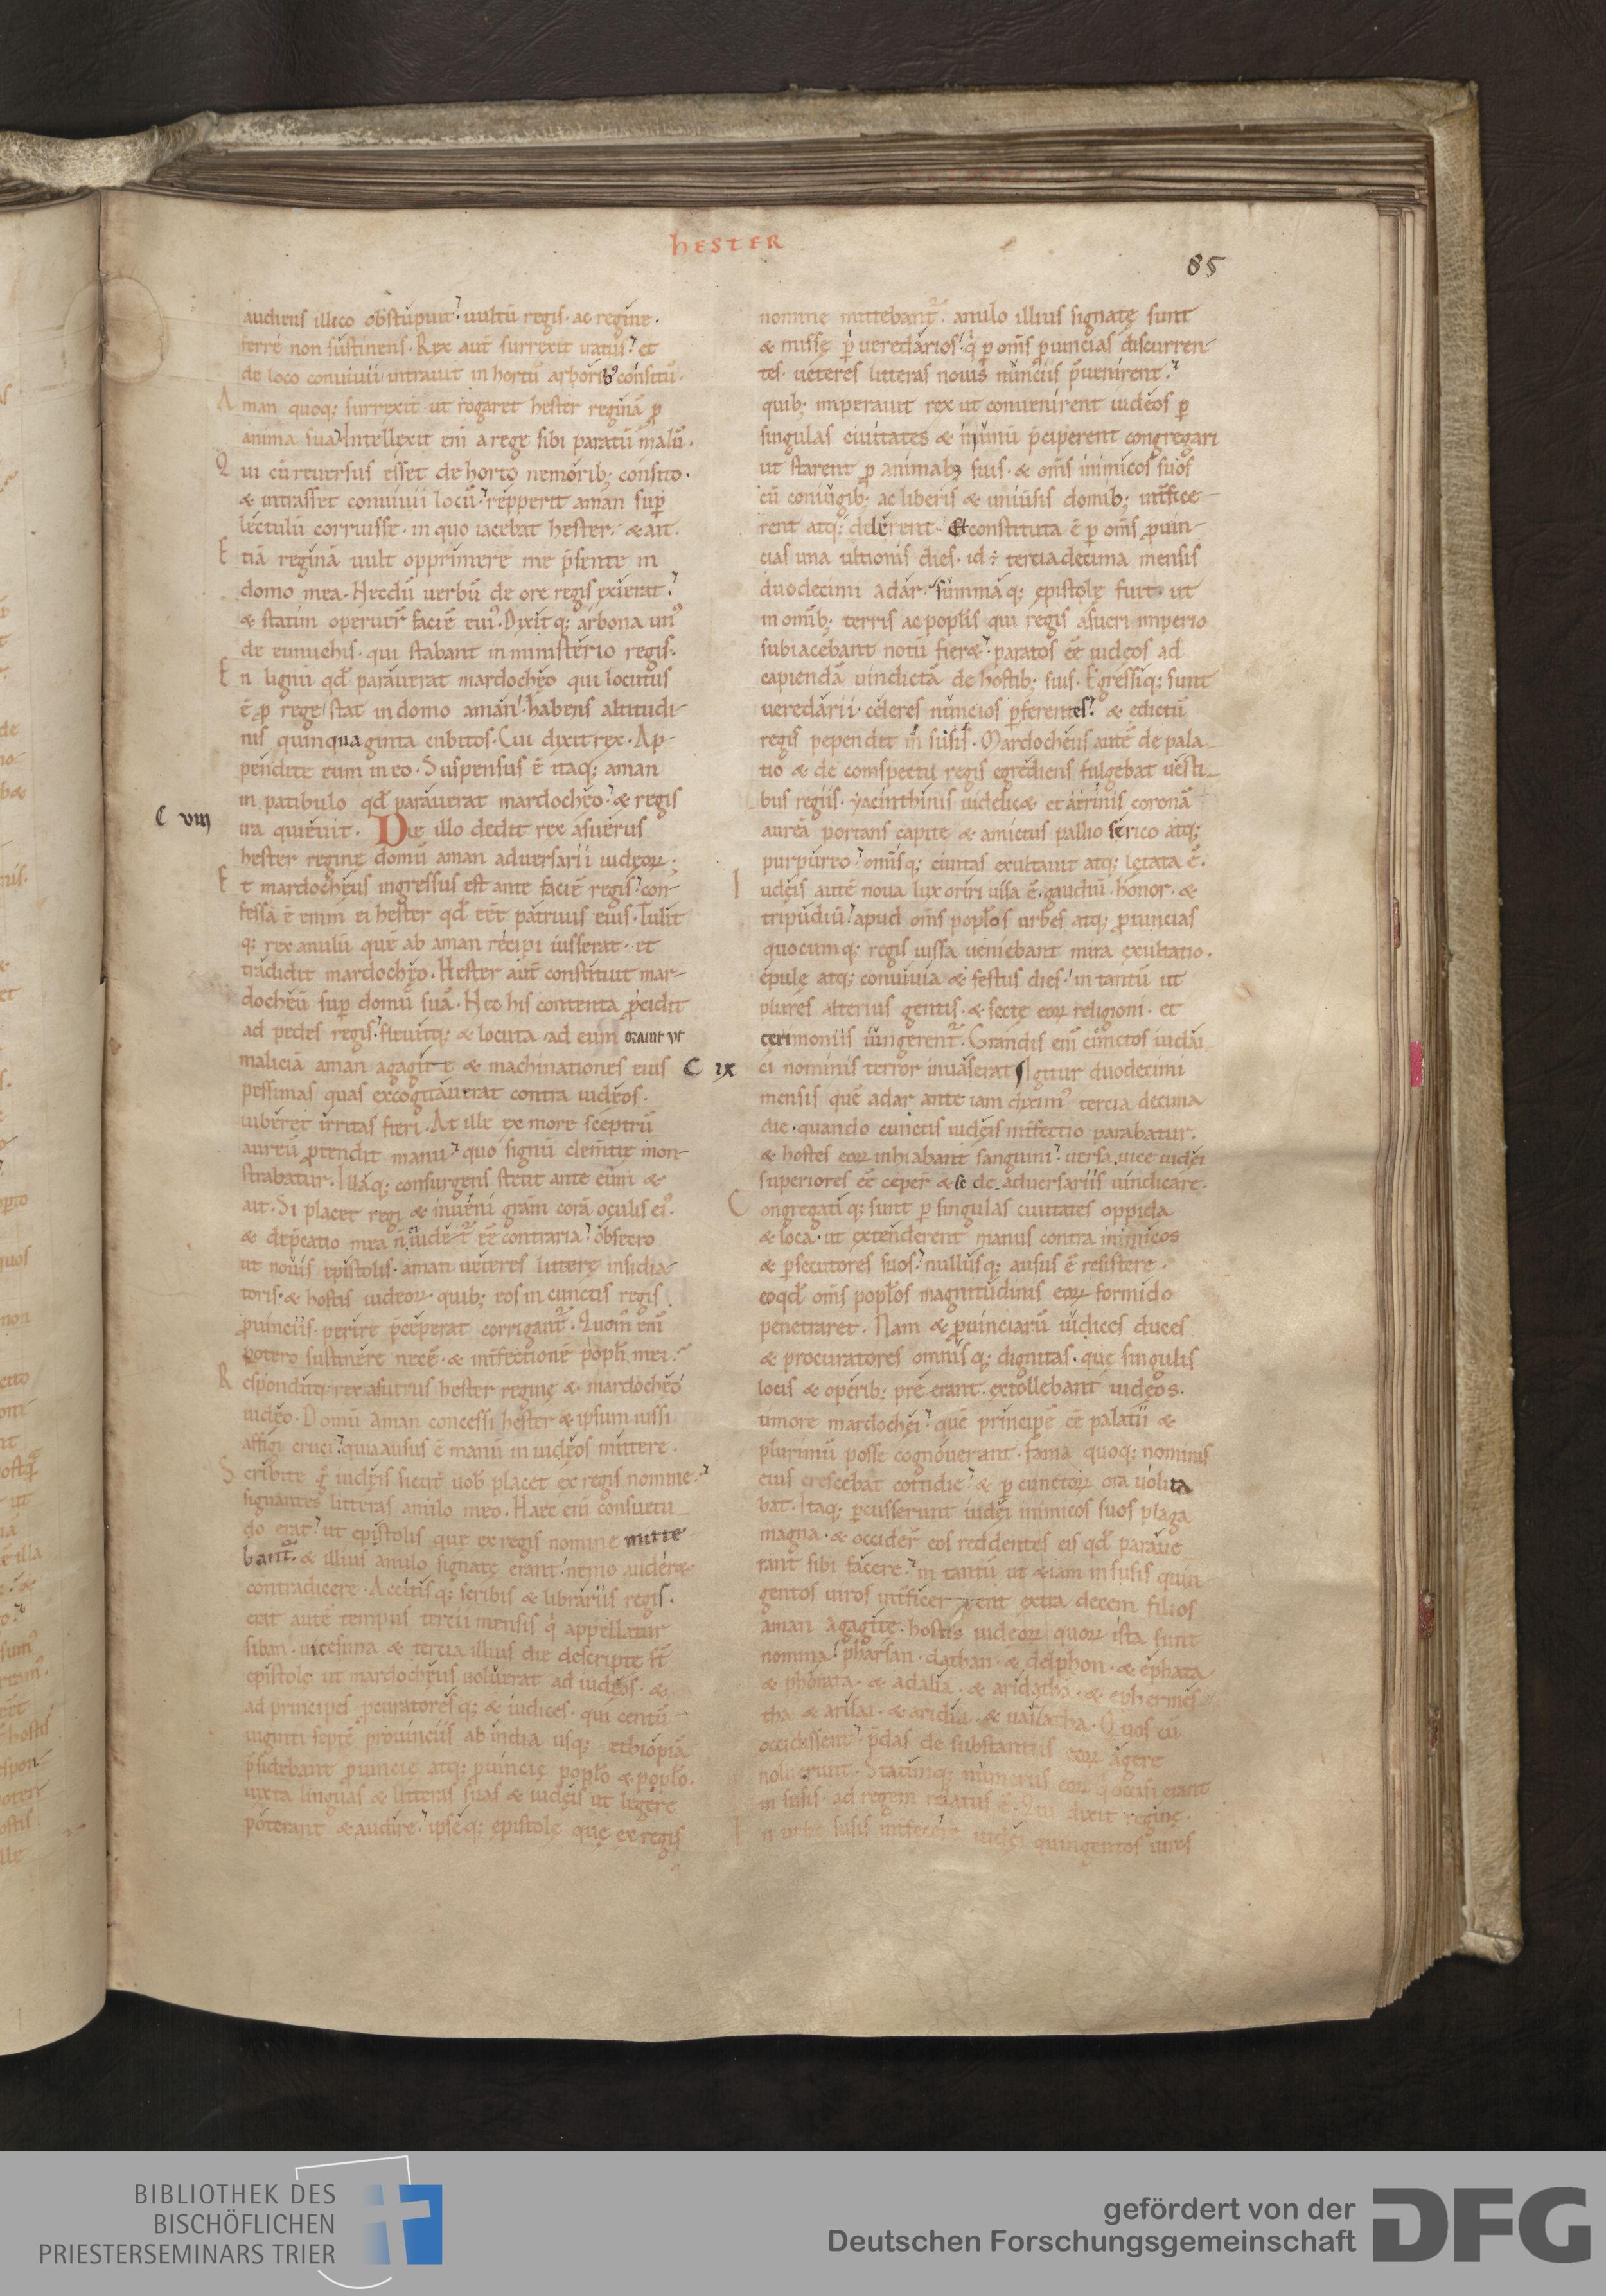 hESTER
85
audiens illico obstupuit. uultū regis. ac regine.
ferre non sustinens. Rex aut̄ surrexit iratus. et
de loco conuiuii intrauit in hortū arborib; consitū.
Aman quoq; surrexit ut rogaret hester reginā ꝑ
anima sua. Intellexit eni͂ a rege sibi paratū malū.
Qui cū reuersus esset de horto nemorib; consito.
& intrasset conuiuii locū. repperit aman suꝑ
lectulū corruisse. in quo iacebat hester. & ait.
Etiā reginā uult opprimere me p̄sente in
domo mea. Necdū uerbū de ore regis exierat.
& statim operuer̄ faciē eiuꝰ. Dixitq; arbona unꝰ
de eunuchis. qui stabant in ministerio regis.
En lignū qd̄ parauerat mardochęo qui locutus
ē ꝓ rege stat in domo aman. habens altitudi-
nis quinquaginta cubitos. Cui dixit rex. Ap-
pendite eum in eo. Suspensus ē itaq; aman
in patibulo qd̄ parauerat mardochęo. & regis
C VIII
ira quieuit. Die illo dedit rex asuerus
hester reginę domū aman aduersarii iudeoꝝ;
Et mardocheus ingressus est ante faciē regis. con-
fessa ē enim ei hester qd̄ eēt patruus eius. Tulit
q; rex anulū quē ab aman recipi iusserat. et
tradidit mardochęo. Hester aut̄ constituit mar-
docheū suꝑ domū suā. Nec his contenta ꝓcidit
ad pedes regis. fleuitq; & locuta ad eum orauit vt
maliciā aman agagite & machinationes eius
pessimas quas excogitauerat contra iudeos.
iuberet irritas fieri. At ille ex more sceptrū
aureū ꝓtendit manu. quo signū clem̄tię mon-
strabatur. Illaq; consurgens stetit ante eum &
ait. Si placet regi & inueni gr̄am corā oculis eiꝰ.
& dep̄catio mea n̄ uidet̄ ēē contraria. obsecro
ut nouis epistolis. aman ueteres litterę insidia-
toris. & hostis iudeoꝝ. quib; eos in cunctis regis
ꝓuinciis. perire p̄ceperat corrigant̄. Quom̄ eni͂
potero sustinere necē. & int̄fectionē popl̄i mei.
Responditq; rex asuerus hester reginę & mardochęo
iudęo. Domū aman concessi hester & ipsum iussi
affigi cruci. quia ausus ē manū in iudęos mittere.
Scribite g̊ iudęis sicut uob̄ placet ex regis nomine.
signantes litteras anulo meo. Haec eni͂ consuetu-
do erat. ut epistolis que ex regis nomine mitte
bant̄. & illius anulo signatę erant. nemo auder&
contradicere. Accitisq; scribis & librariis regis.
erat autē tempus tercii mensis q̇ appellatur
siban. uicesima & tercia illius die descripte st̄
epistolę ut mardochęus uoluerat ad iudęos. &
ad principes ꝓcuratoresq; & iudices. qui centū
uiginti septē prouinciis ab india usq; ethiopiā
p̄sidebant ꝓuincię atq; ꝓuincię popl̄o & popl̄o.
iuxta linguas & litteras suas & iudęis ut legere
poterant & audire. ipseq; epistolę que ex regis
nomine mittebant̄. anulo illius signatę sunt
& missę ꝑ ueredarios. q̇ ꝑ om̄s ꝓuincias discurren-
tes. ueteres litteras nouis nunciis p̄uenirent.
quib; imperauit rex ut conuenirent iudęos ꝑ
singulas ciuitates & in unū p̄ciperent congregari
ut starent ꝓ animab; suis. & om̄s inimicos suos
cū coniugib; ac liberis & uniu̅sis domib; int̄fice-
rent atq; delerent. Et constituta ē ꝑ om̄s ꝓuin-
cias una ultionis dies. id ÷ tercia decima mensis
duodecimi adar. summaq; epistolę fuit. ut
in omīb; terris ac popl̄is qui regis asueri imperio
subiacebant notū fier&. paratos ēē iudęos ad
capiendā uindictā de hostib; suis. Egressiq; sunt
ueredarii. celeres nuncios ꝑferentes. & edictū
regis pependit in susis. Mardocheus autē de pala-
tio & de conspectu regis egrediens fulgebat uesti-
bus regiis. yacinthinis uidelic& et aerinis coronā
aureā portans capite & amictus pallio serico atq;
purpureo. omīsq; ciuitas exultauit atq; lętata ē.
Iudęis autē noua lux oriri uisa ē. gaudiū. honor. &
tripudiū. apud om̄s popl̄os urbes atq; ꝓuincias
quocumq; regis iussa ueniebant mira exultatio.
epulę atq; conuiuia & festus dies. in tantū ut
plures alterius gentis. & sectę eoꝝ religioni. et
cerimoniis iungerent̄. Grandis eni͂ cunctos iudai
C IX
ci nominis terror inuaserat. Igitur duodecimi
mensis quē adar ante iam diximꝰ tercia decima
die. quando cunctis iudęis int̄fectio parabatur.
& hostes eoꝝ inhiabant sanguini. uersa uice iudęi
superiores ēē ceper̄ & se de aduersariis uindicare.
Congregatiq; sunt ꝑ singulas ciuitates oppida
& loca. ut extenderent manus contra inimicos
& ꝑsecutores suos. nullusq; ausus ē resistere.
eo qd̄ om̄s popl̄os magnitudinis eoꝝ formido
penetraret. Nam & ꝓuinciarū iudices duces
& procuratores omnisq; dignitas. que singulis
locis & operib; pre erant. extollebant iudęos.
timore mardochęi. quē principē ēē palatii &
plurimū posse cognouerant. fama quoq; nominis
eius crescebat cottidie. & ꝑ cunctoꝝ ora uolita
bat. Itaq; ꝑcusserunt iudęi inimicos suos plaga
magna. & occider̄ eos reddentes eis qd̄ paraue
rant sibi facere. in tantū ut & iam in susis quin
gentos uiros int̄ficerent extra decem filios
aman agagite. hostis iudeoꝝ quoꝝ ista sunt
nomina. pharsan. dathan. & delphon. & ephata
& phorata. & adalia. & aridatha. & ephermes
tha & arisai. & aridia. & uaizatha. Quos cū
occidissent. p̄das de substantiis eoꝝ agere
noluerunt. Statimq; numerus eoꝝ q̇ occisi erant
in susis. ad regem relatus ē. Qui dixit reginę.
In urbe susis int̄fecere iudęi quingentos uiros
BIBLIOTHEK DES
BISCHÖFLICHEN
PRIESTERSEMINARS TRIER
gefördert von der
Deutschen Forschungsgemeinschaft
DFG